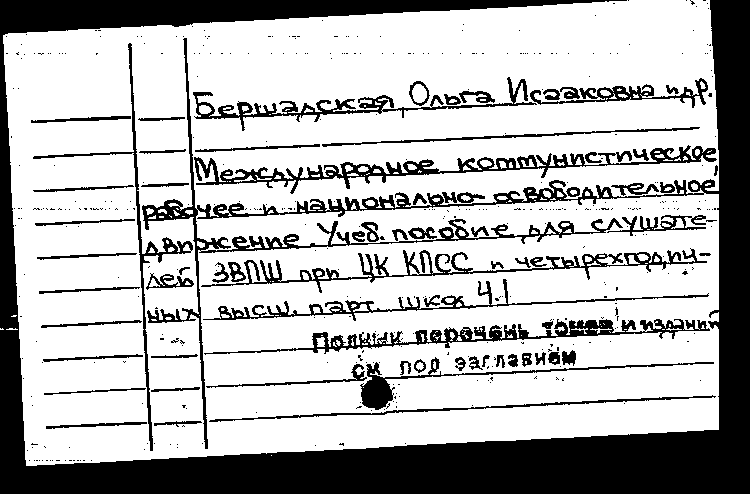 Бершадская, Ольга Исааковна и др.
Международное коммунистическое,
рабочее и национально-освободительное
движение. Учеб. пособие для слушате-
лей ЗВПШ при ЦК КПСС и четырехгодич-
ных высш. парт. школ Ч.1
Полный перечень томов и изданий
см под заглавием